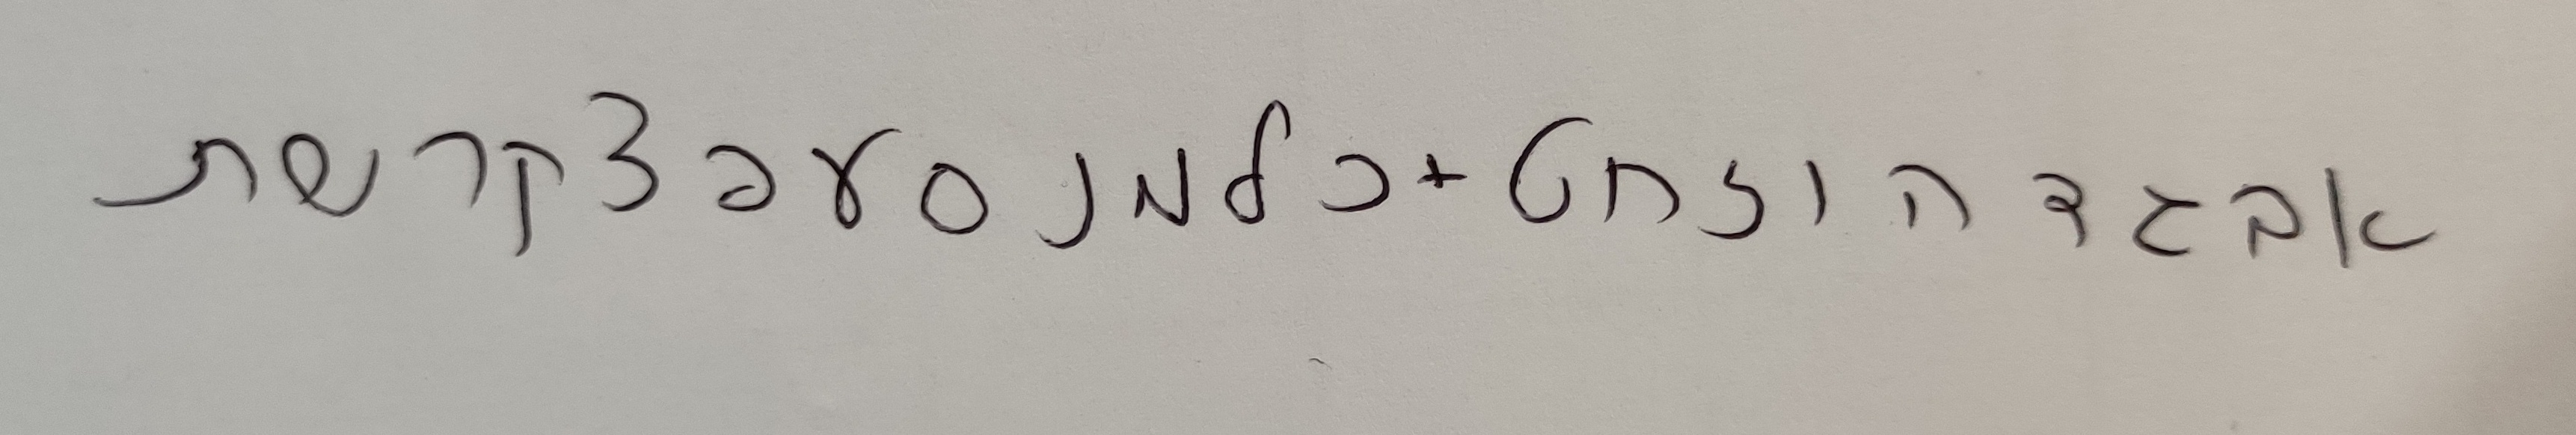 אבגדהוזחט+כלמנסעפצקרשת